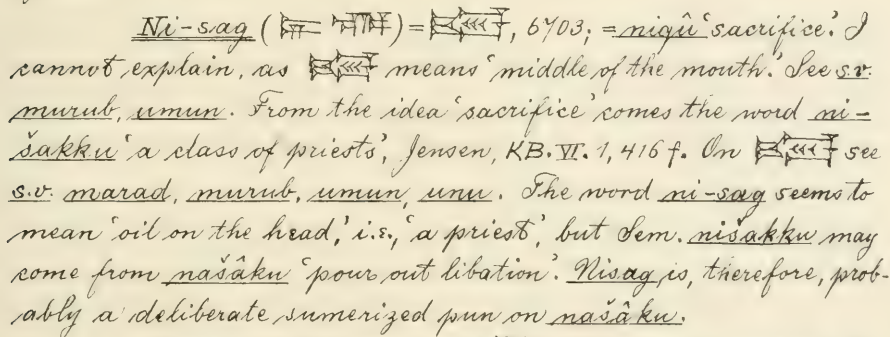 Ni-sag (𒉌 𒊕) = , 6703; = niqû 'sacrifice.' I
cannot explain, as means 'middle of the mouth.' See s.v.
murub, umun. From the idea 'sacrifice' comes the word ni-
šakku 'a class of priests', Jensen, KB. VI. 1, 416 f. On see
s.v. marad, murub, umun, unu. The word ni-sag seems to
mean 'oil on the head,' i.e., 'a priest', but Sem. nišakku may
come from našâku 'pour out libation'. Nisag is, therefore, prob-
ably a deliberate sumerized pun on našâku.